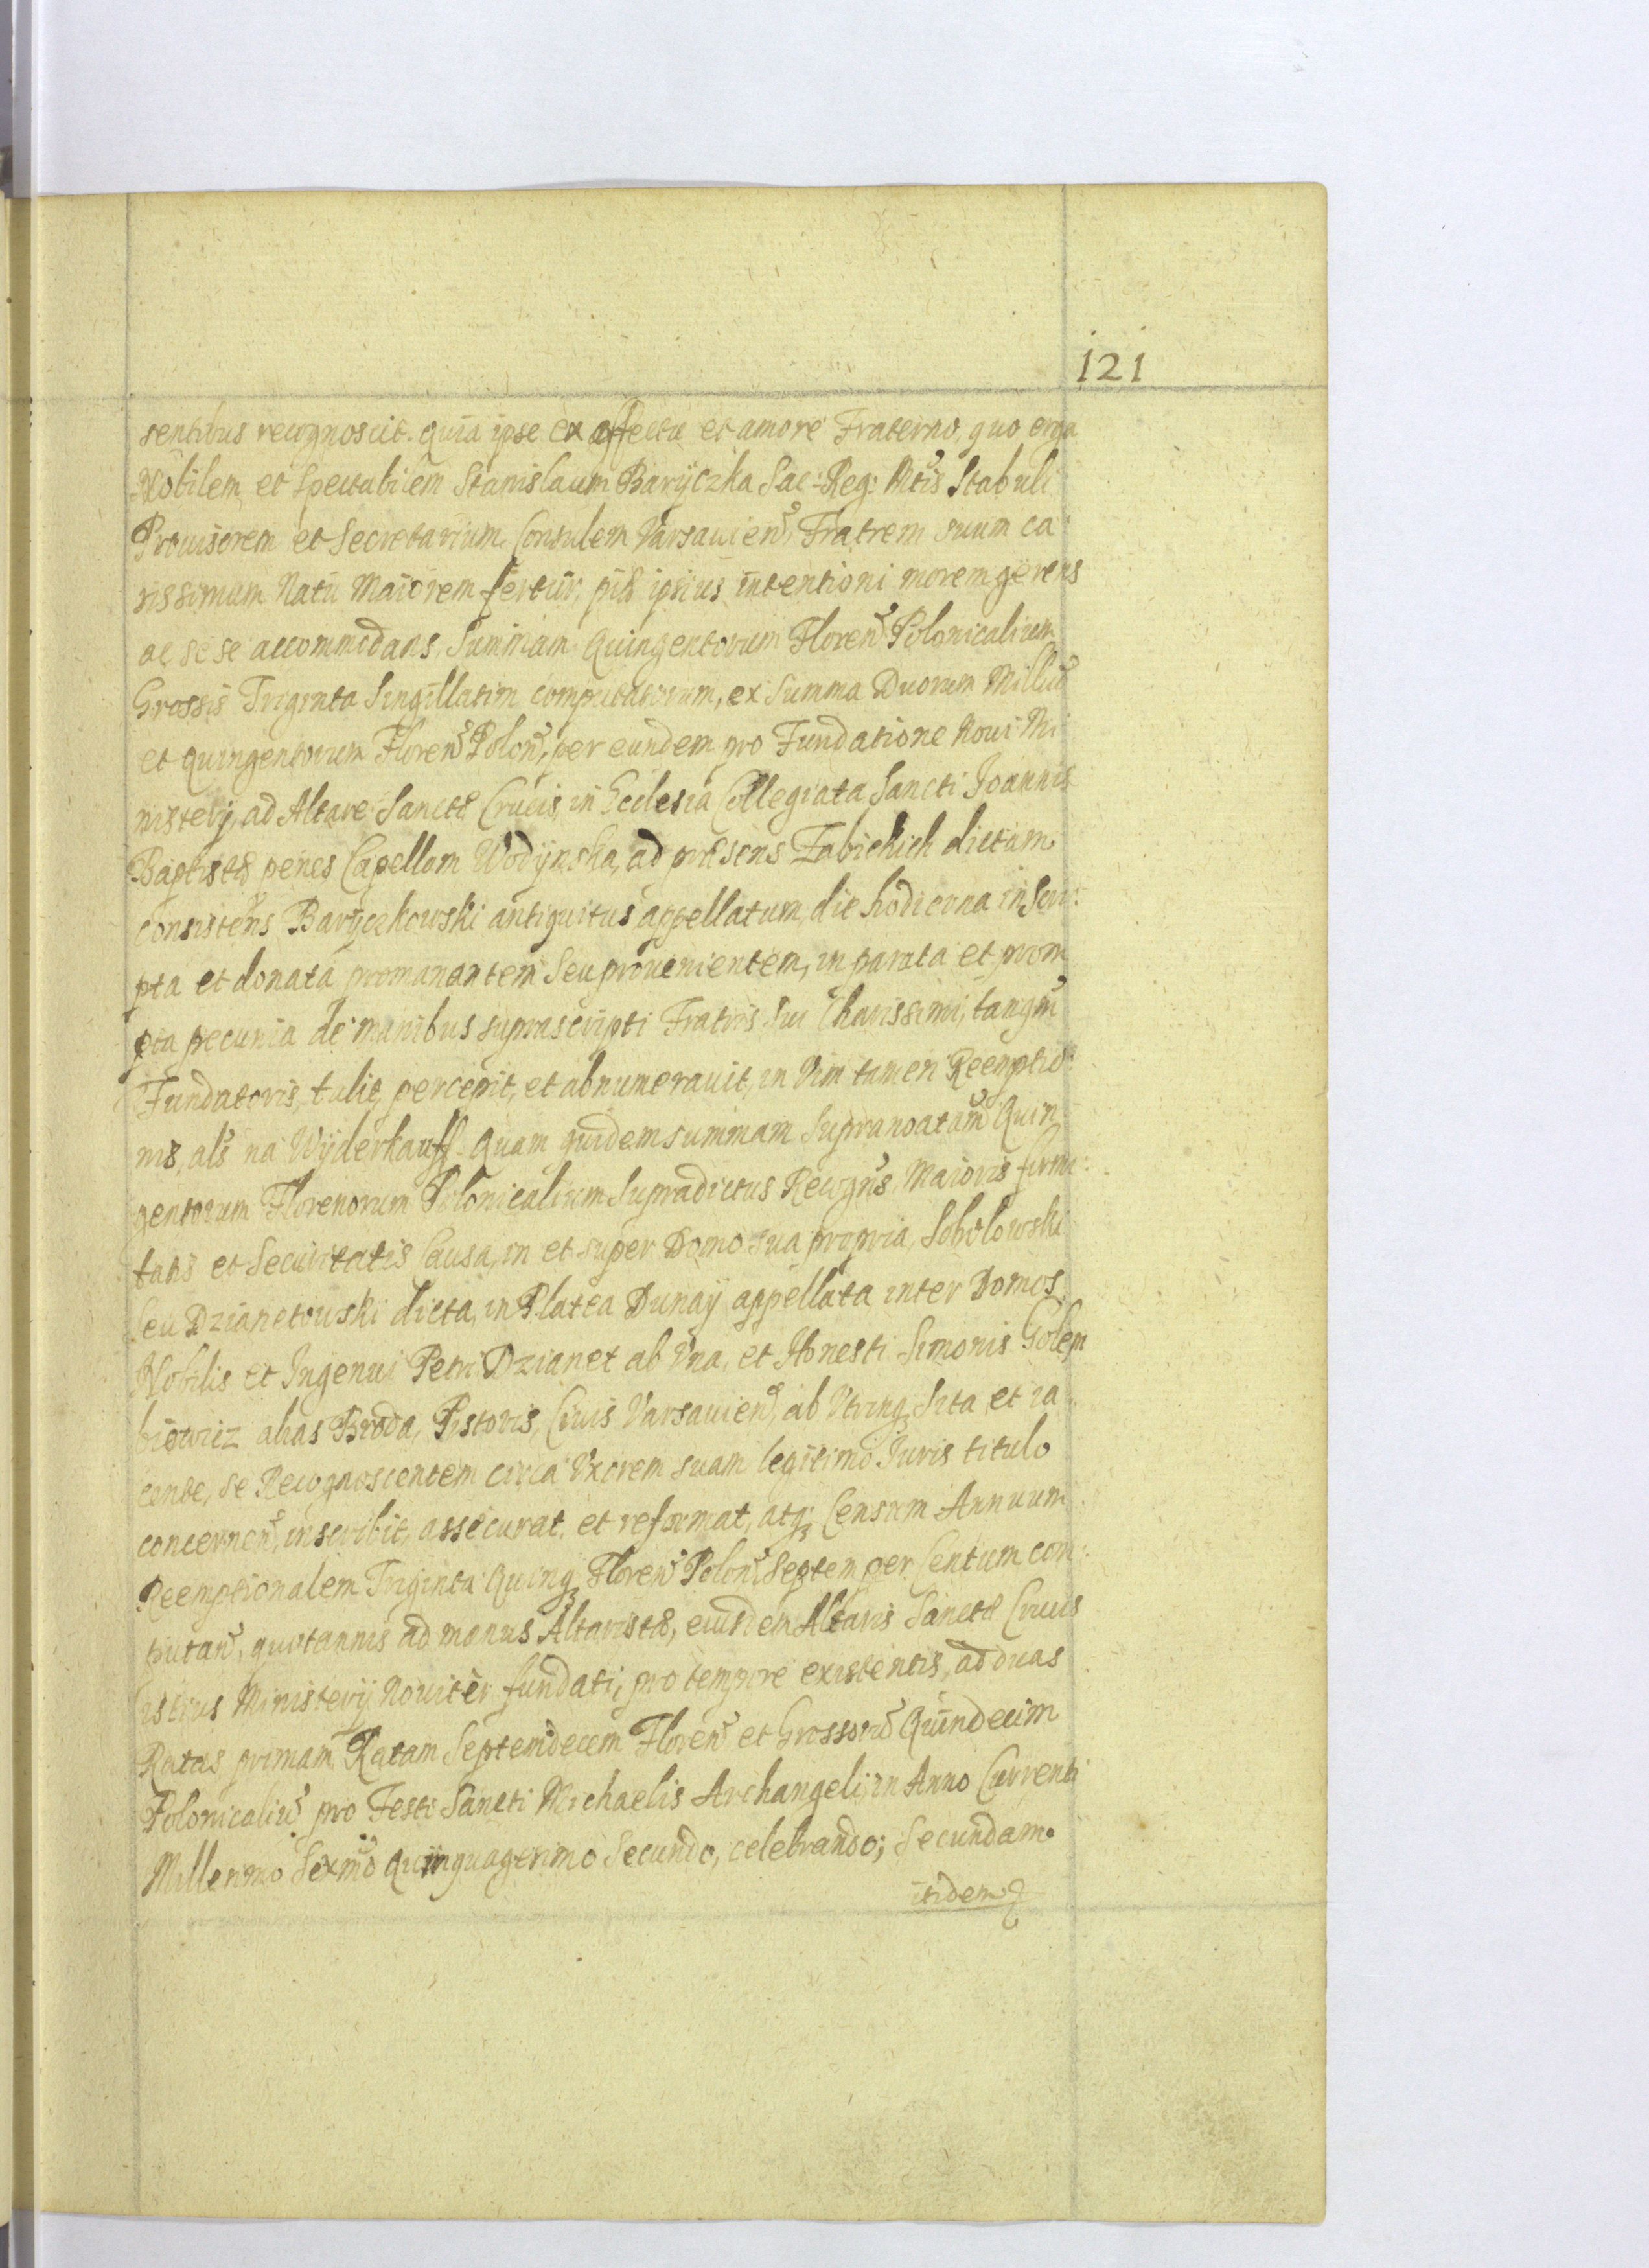 121
sentibus recognoscit. quia ipse ex affectu et amore Fraterno, quo erga
Nobilem et Spectabilem Stanislaum Baryczka Sac: Reg: Mtis Stabuli
Prouisorem et Secretarium, Consulem Varsauien, Fratrem suum ca
rissimum Natu Maiorem fertur, piæ ipsius intentioni morem gerens
ac sese accommodans, Summam Quingentorum Floren Polonicalium
Grossis Triginta Singillatim computatorum, ex Summa Duorum Milliu
et quingentorum Floren Polon, per eundem pro Fundatione Noui Mi
nisterij, ad Altare Sanctæ Crucis, in Ecclesia Collegiata Sancti Joannis
Baptistæ penes Capellam Wodynska, ad præsens Zabickich dictam
consistens Baryczkowski antiquitus appellatum, die hodierna inscri:
pta et donata promanantem Seu prouenientem, in parata et prom
pta pecunia de manibus suprascripti Fratris Sui Charissimi, tanqm
Fundatoris, tulit, percepit, et abnumerauit, in Vim tamen Reemptio:
nis, als na Wyderkauff. Quam quidem summam Supranoatam Quin
gentorum Florenorum Polonicalium Supradictus Recogns, Maioris firmi:
tatis et Securitatis Causa, in et super Domo sua propria, Sobolowski
Seu Dzianetowski dicta, in Platea Dunay appellata inter Domos
Nobilis et Ingenui Petri Dzianet ab Vna, et Honesti Simonis Golem
biowicz alias Broda, Pistoris, Ciuis Varsauien, ab Vtrinq; Sita et ia
cente, Se Recognoscentem circa Vxorem suam legitimo Juris titulo
concernen, inscribit, assecurat, et reformat, atq; Censum Annuum
Reemptionalem Triginta Quinq; Floren Polon, Septem per Centum com:
putan, quotannis ad manus Altaristæ, eiusdem Altaris Sanctæ Crucis
istius Ministerij Nouiter fundati, pro tempore existentis, ad duas
Ratas, primam Ratam Septemdecem Floren et Grossoru Quindecim
Polonicaliu pro Festo Sancti Michaelis Archangeli, in Anno Currenti
Millenimo Sexmo Quinquagesimo Secundo, celebrando; Secundam
itidem